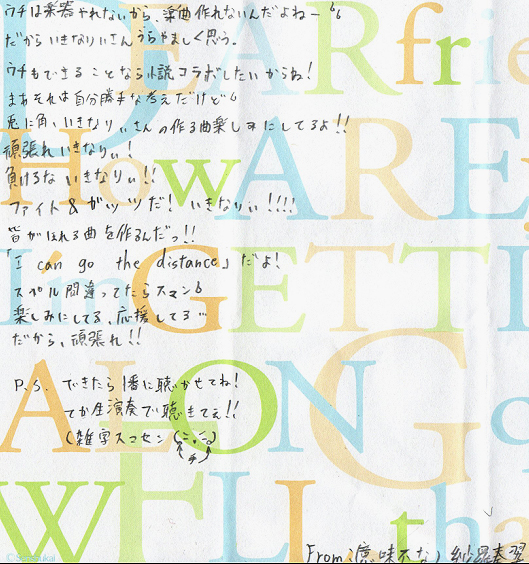 ウチは楽器やれないから、楽曲作れないんだよねー
だからいきなりぃさんうらやましく思う。
ウチもできることなら小説コラボしたいからね!
まぁそれは自分勝手な考えだけど
兎に角、いきなりぃさんの作る曲楽しみにしてるよ!!
頑張れいきなりぃ!
負けるな いきなりぃ!!
ファイト&ガッツだ! いきなりぃ!!!!
皆がほれる曲を作るんだっ!!
「I can go the distance」だよ!
スペル間違ってたらスマン
楽しみにしてる、応援してる…
だから、頑張れ!!
P.S. できたら1番に聴かせてね!
てか生演奏で聴きてぇ!!
(雑字スマセン
手
From:(意味不な)
DEAR frie
HowARE
IinGETTI
ALONG
WELL tha